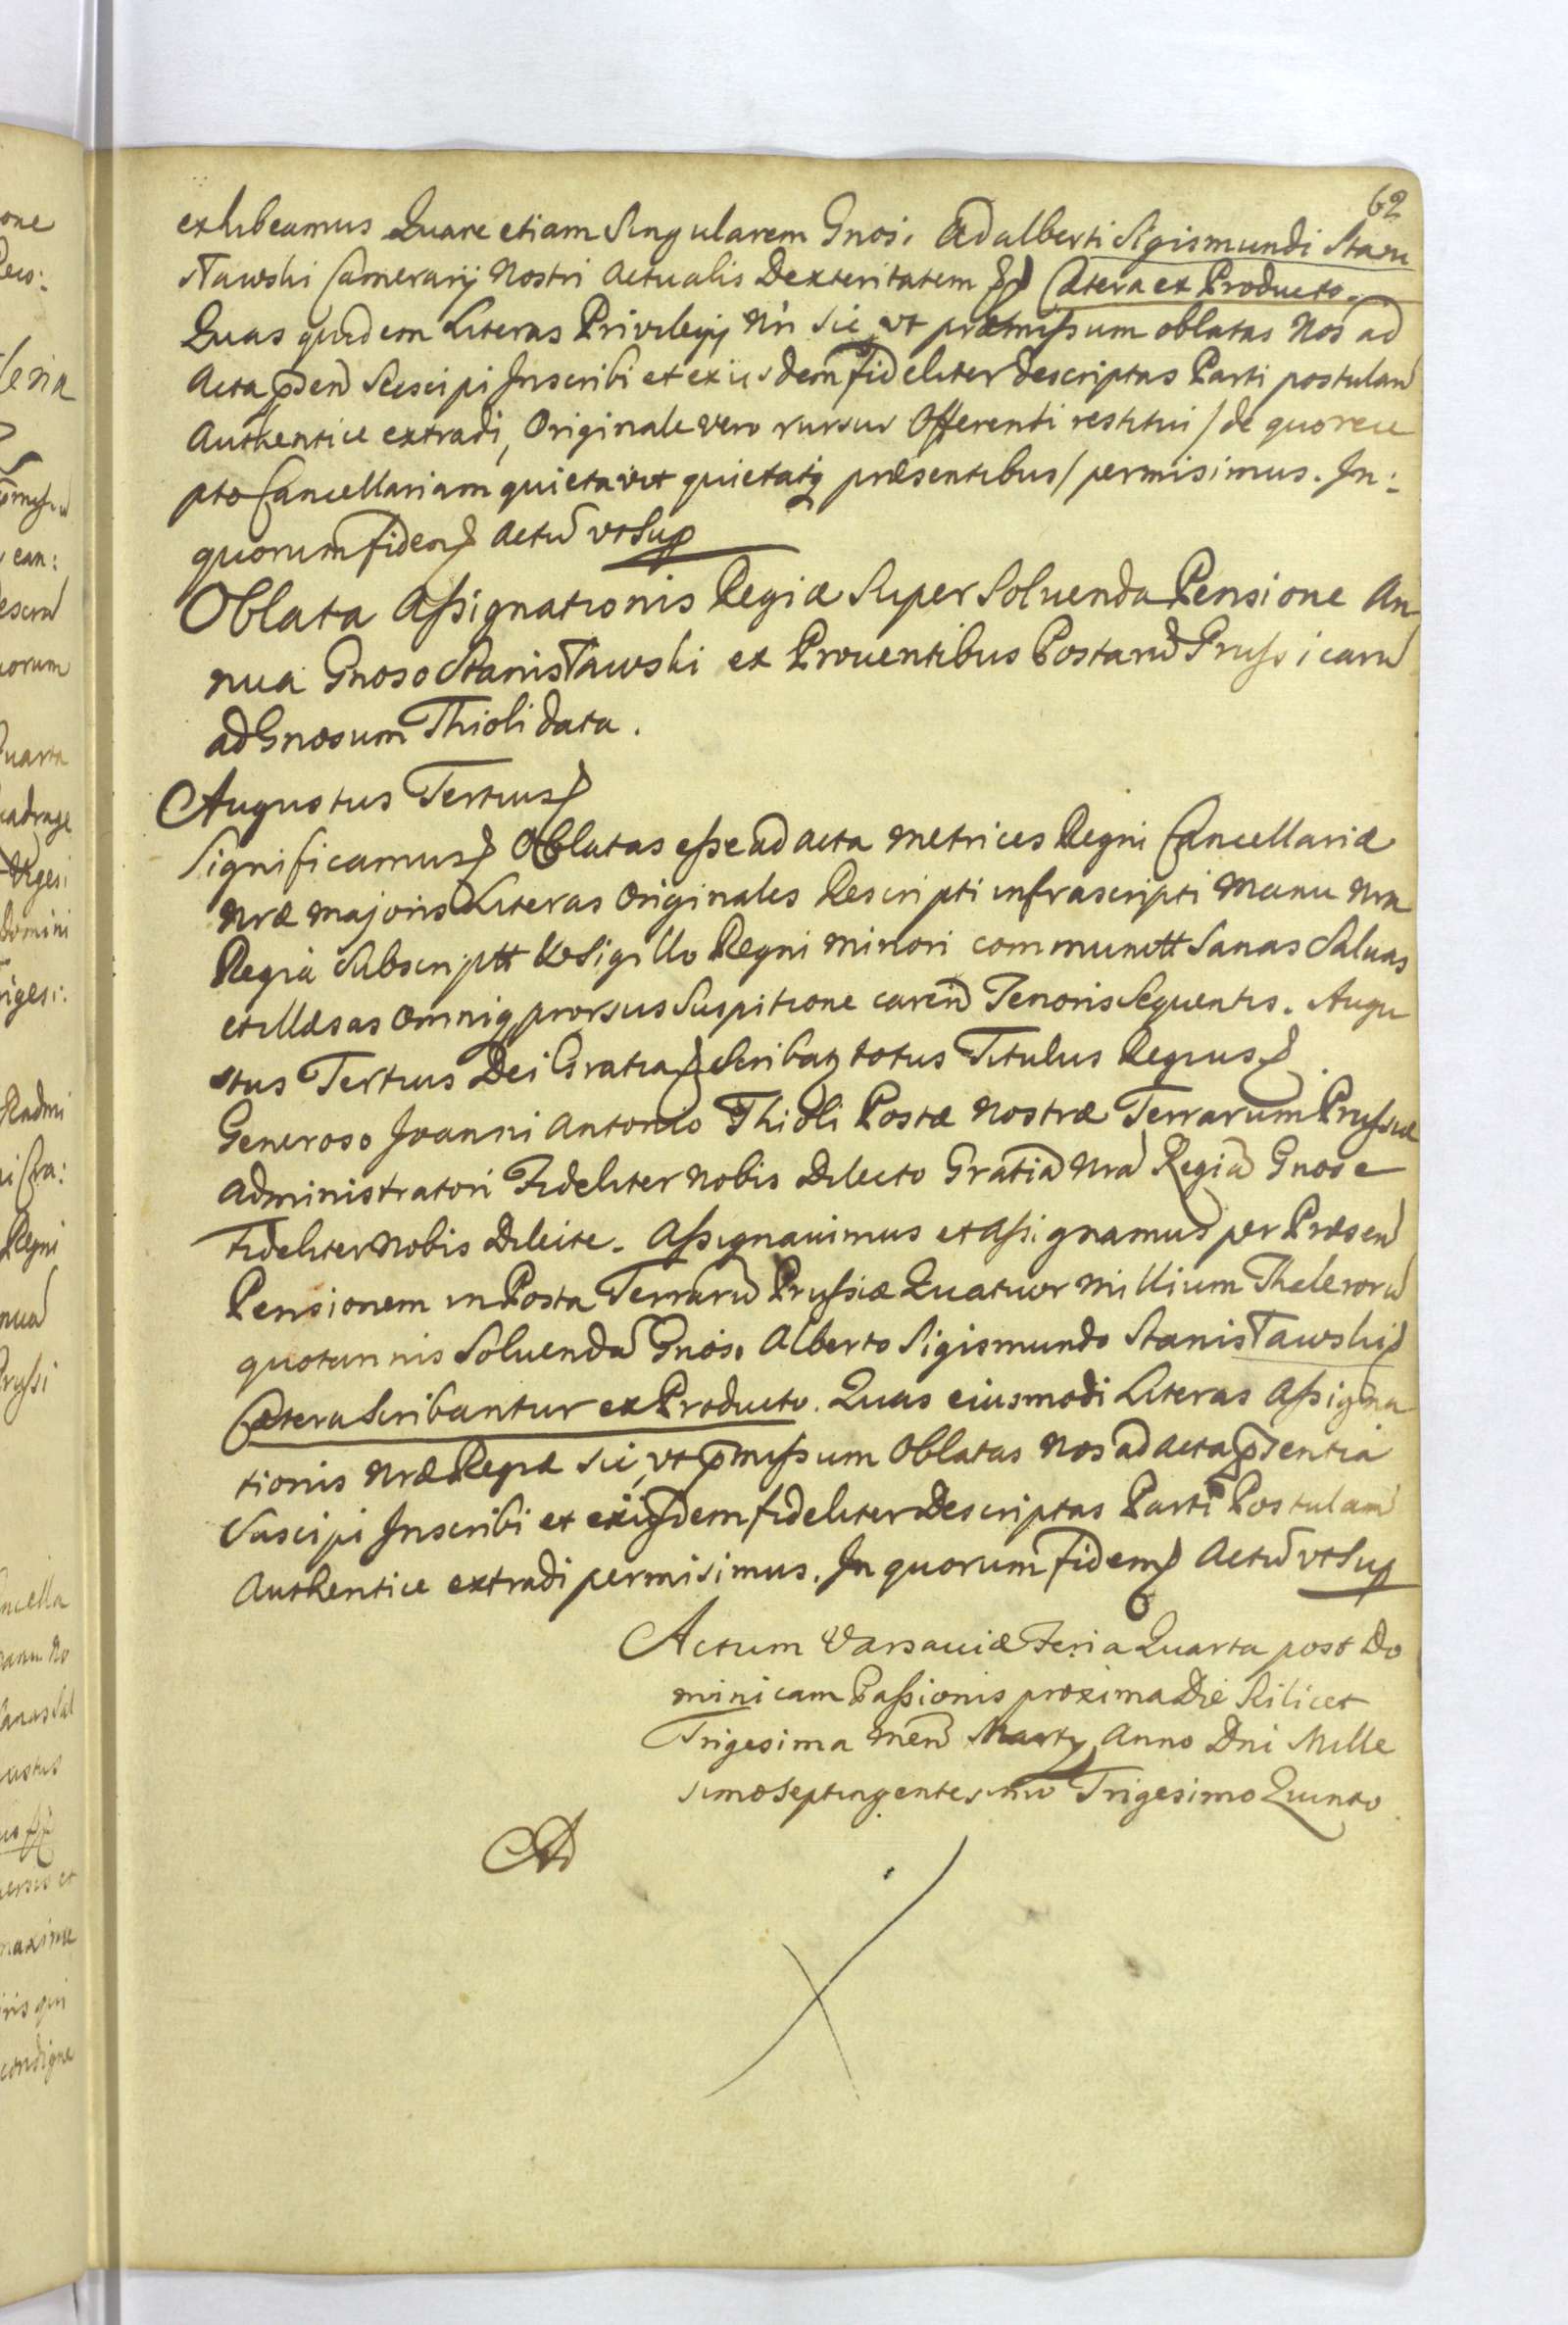 62
exhibeamus Quare etiam Singularem Gnosi Adalberti Sigismundi Stani
sławski Camerarij Nostri Actualis Dexteritatem Cætera ex Producto.
Quas quidem Literas Privilegij Nri sic, vt præmissum oblatas Nos ad
Acta pñsen Suscipi Inscribi et exijsdem fideliter descriptas Parti postulan
Authentice extradi, Originale vero rursus Offerenti restitui / de quo rece
pto Cancellariam quietavit quietatq præsentibus / permisimus. In:
quorum fidem Actu vt Sup
Oblata Assignationis Regiæ Super Soluenda Pensione An
nua Gnoso Stanisławski ex Prouentibus Postaru Prussicaru
ad Gnosum Thioli data.
Augustus Tertius
Significamus Oblatas esse ad acta Metrices Regni Cancellariæ
Nræ Majoris Literas Originales Rescripti infrascripti Manu Nra
Regia Subscriptt &c Sigillo Regni minori communitt Sanas Saluas
et illæsas Omniq prorsus Suspitione caren Tenoris Sequentis. Augu
stus Tertius Dei Gratia Scribatz totus Titulus Regius
Generoso Joanni Antonio Thioli Postæ Nostræ Terrarum Prussiæ
Administratori Fideliter Nobis Dilecto Gratia Nra Regia Gnose
Fideliter Nobis Dilecte. Assignauimus et Assignamus per Præsen
Pensionem in Posta Terraru Prussiæ Quatuor Millium Thelerorū
quotannis Soluenda Gnoso Alberto Sigismundo Stanisławski
Cætera Scribantur ex Producto. Quas eiusmodi Literas Assigna
tionis Nræ Regiæ sic, vt pmissum Oblatas Nos ad acta psentia
Suscipi Inscribi et exijsdem fideliter Descriptas Parti Postulan
Authentice extradi permisimus. In quorum fidem Actu vt Sup
Actum Varsauiæ Feria Quarta post Do
minicam Passionis proxima Die Scilicet
Trigesima Men Martij Anno Dni Mille
simo Septingentesimo Trigesimo Quinto
Ad